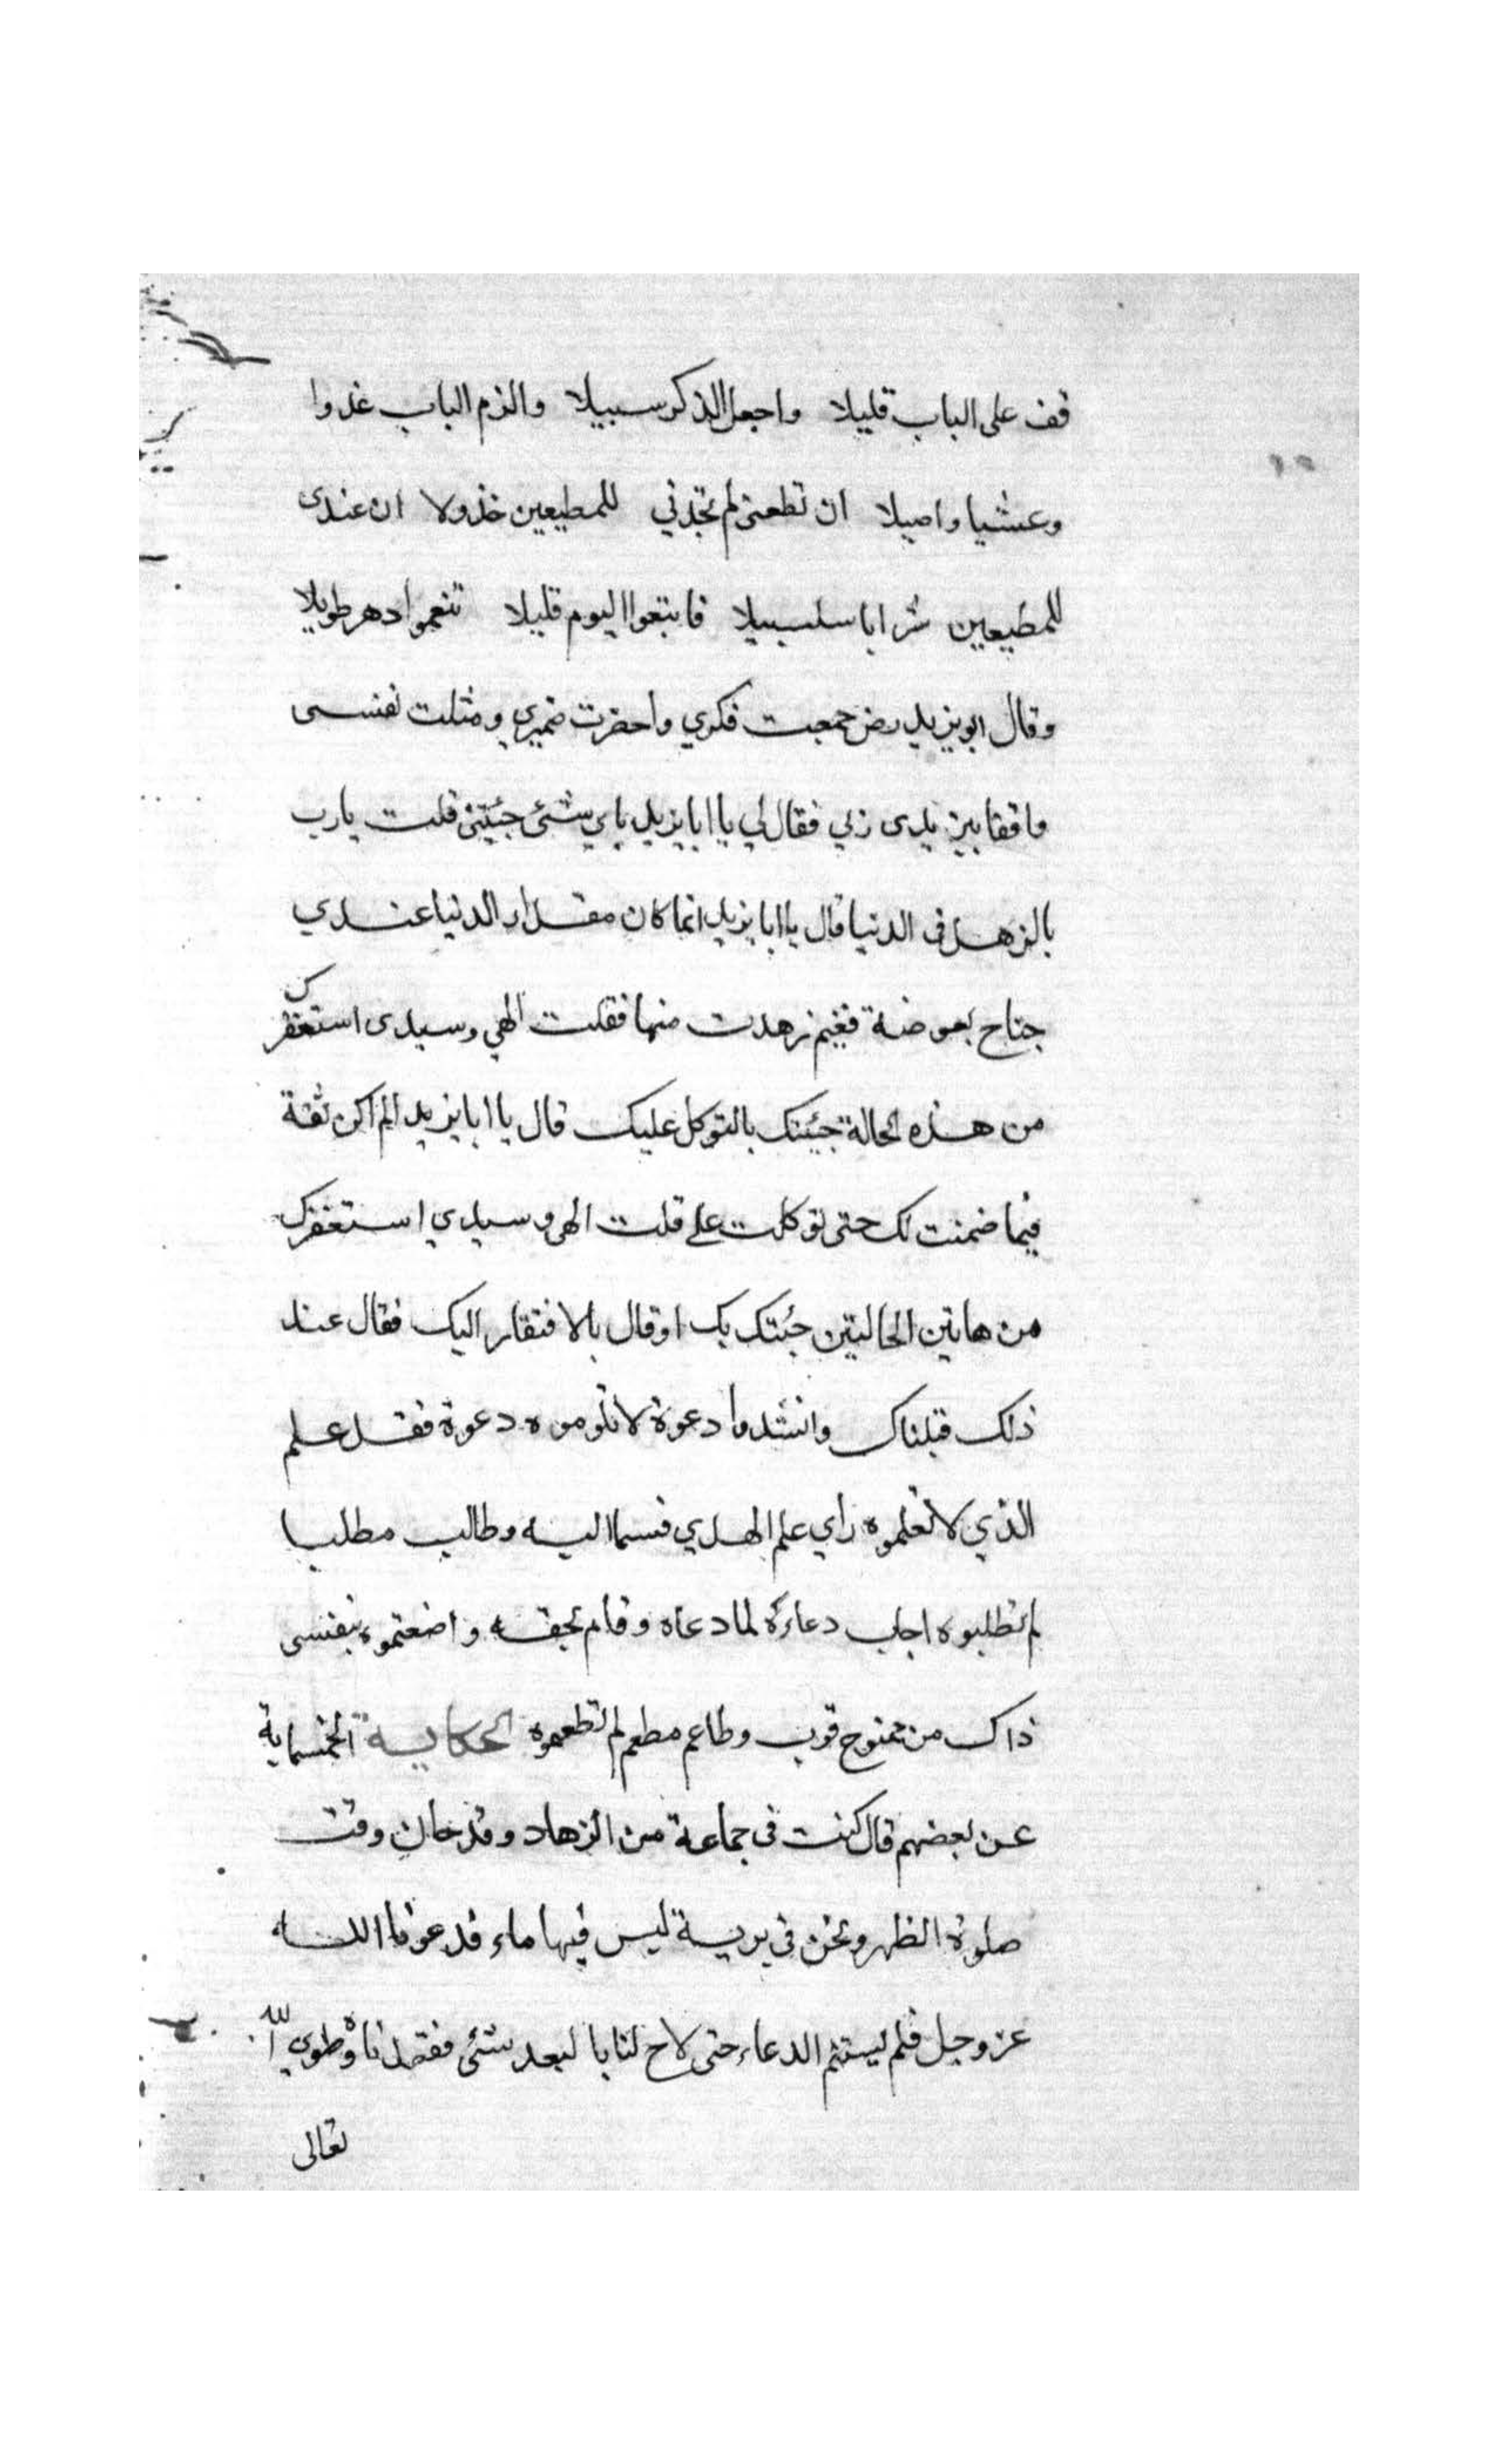 قف على الباب قليلا واجعل الذكر سبيلا والزم الباب غدوا
وعشيا واصيلا ان تطعنى لم تجدني للمطيعين خذولا ان عندى
للمطيعين شرابا سلسبيلا فابتعوا اليوم قليلا تنعموا دهر طويلا
وقال ابو يزيد رض جمعت فكري واحضرت ضميري ومثلت نفسى
واقفا بين يدى ربي فقال لي يا ابا يزيد باي شئ جئتنى قلت يا رب
بالزهد فى الدنيا قال يا ابا يزيد انما كان مقدار الدنيا عندي
جناح بعوضة ففيم زهدت منها فقلت الهي وسيدى استغفرك
من هذه الحالة جئتك بالتوكل عليك قال يا ابا يزيد الم اكن ثقة
فيما ضمنت لك حتى توكلت على قلت الهى وسيدي استغفرك
من هاتين الحالتين جئتك بك او قال بالافتقار اليك فقال عند
ذلك قبلناك وانشدوا دعوة لا تلوموه دعوة فقد علم
الذي لا تعلموه راي علم الهدي فسما اليه وطالب مطلبا
لم تطلبوه اجاب دعاءه لما دعاه وقام بحقه واضعتموه بنفسى
ذاك من ممنوح قرب وطاعم مطعم لم تطعموه الحكاية الخمسماية
عن بعضهم قال كنت فى جماعة من الزهاد وقد حان وقت
صلوة الظهر ونحن فى برية ليس فيها ماء فدعونا الله
عز وجل فلم يستتم الدعاء حتى لاح لنا بالبعد شئ فقصدناه وطوي الله
تعالى